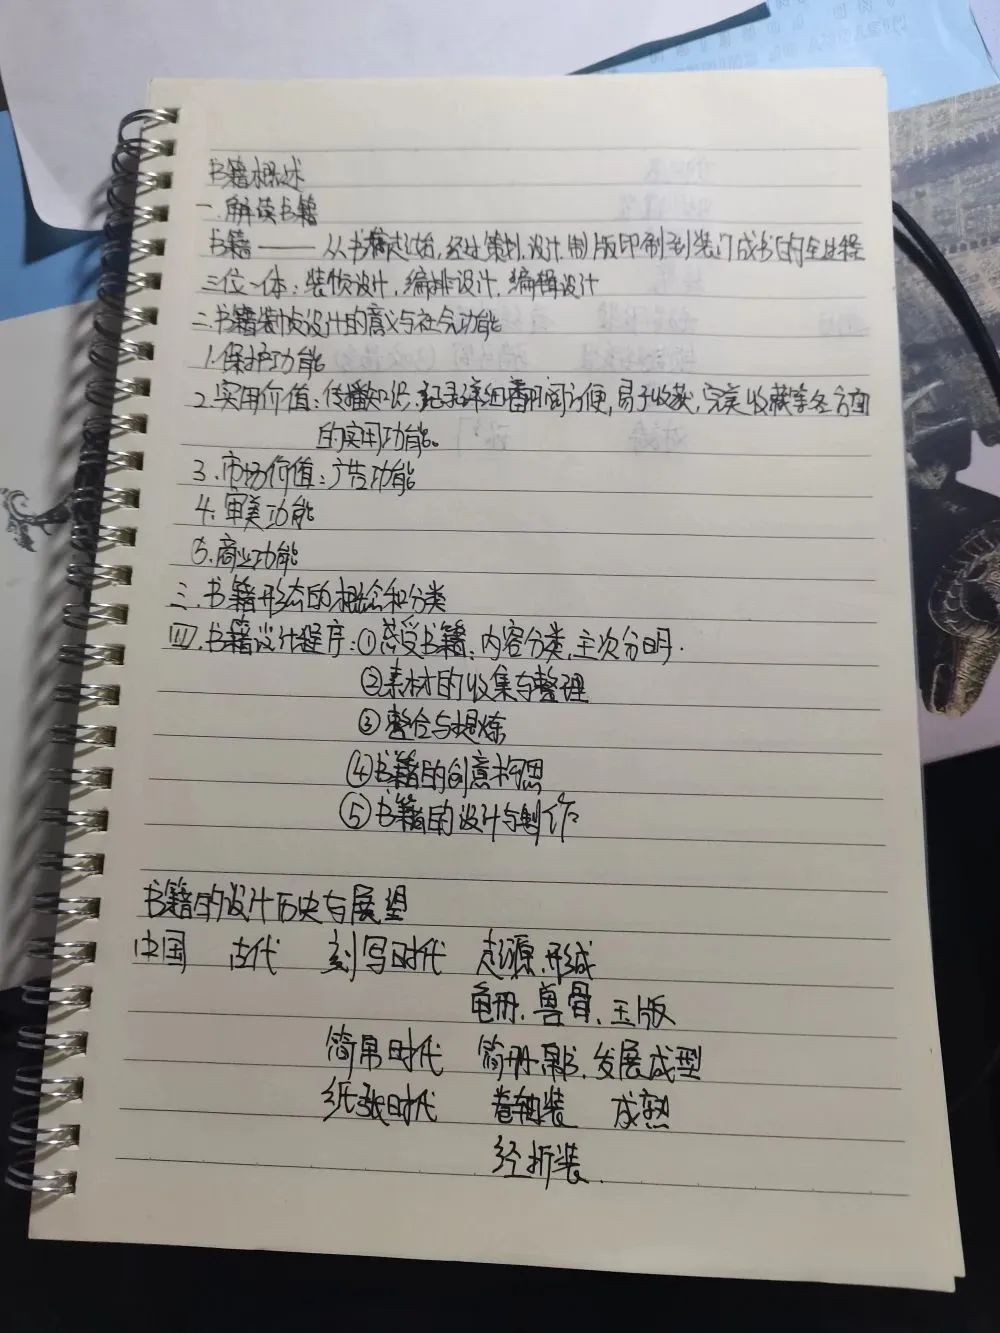 书籍概述
一.解读书籍
书籍——从书稿起始,经过策划.设计.制版印制到装订成书的全过程
三位一体:装帧设计,编排设计,编辑设计
二.书籍装帧设计的意义与社会功能
1.保护功能
2.实用价值:传播知识.记录详细翻阅方便,易于收获,完美收藏等各方面
的实用功能。
3.市场价值:广告功能
4.审美功能
5.商业功能
三.书籍形态的概念和分类
四.书籍设计程序:①感受书籍、内容分类,主次分明.
②素材的收集与整理
③整合与提炼
④书籍的创意构思
⑤书籍的设计与制作
书籍的设计历史与展望
中国 古代 刻写时代 起源.形成
龟册.兽骨、玉版
简帛时代 简册帛书.发展成型
纸张时代 卷轴装 成熟
经折装.